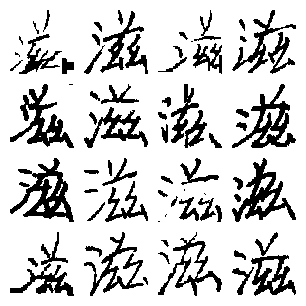 滋滋滋滋
滋滋滋滋
滋滋滋滋
滋滋滋滋